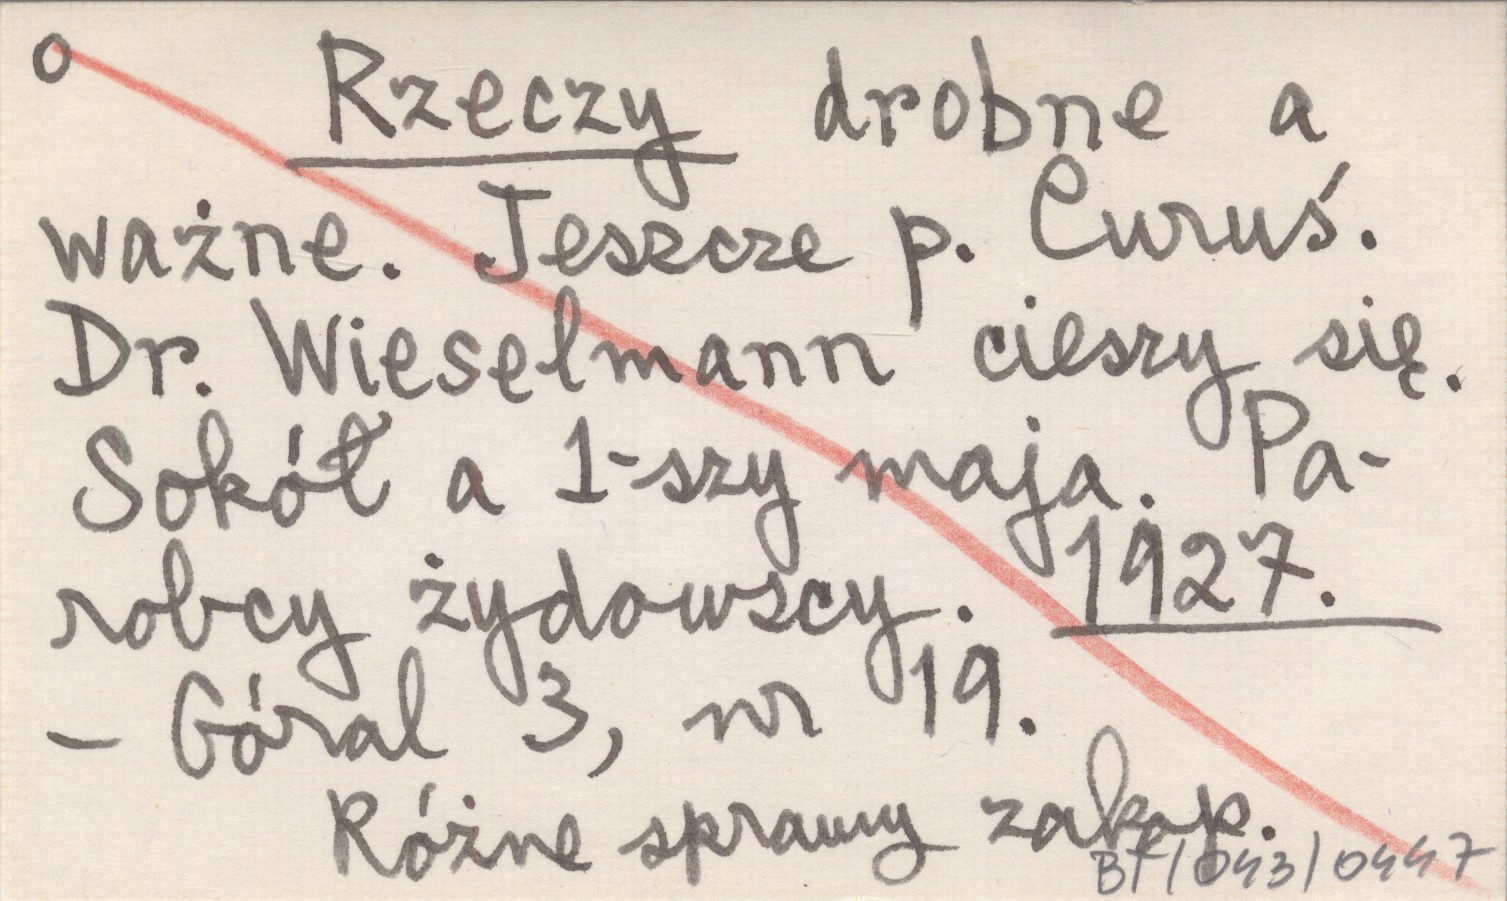 o Rzeczy drobne a
ważne. Jeszcze p. Curuś.
Dr. Wieselmann cieszy się.
Sokół a 1-szy maja. Pa-
robcy żydowscy. 1927.
- Góral 3, nr 19.
Różne sprawy zakop.
BT/043/0447